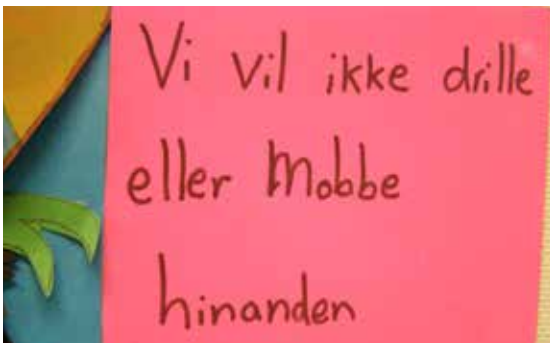 Vi vil ikke drille
eller Mobbe
hinanden